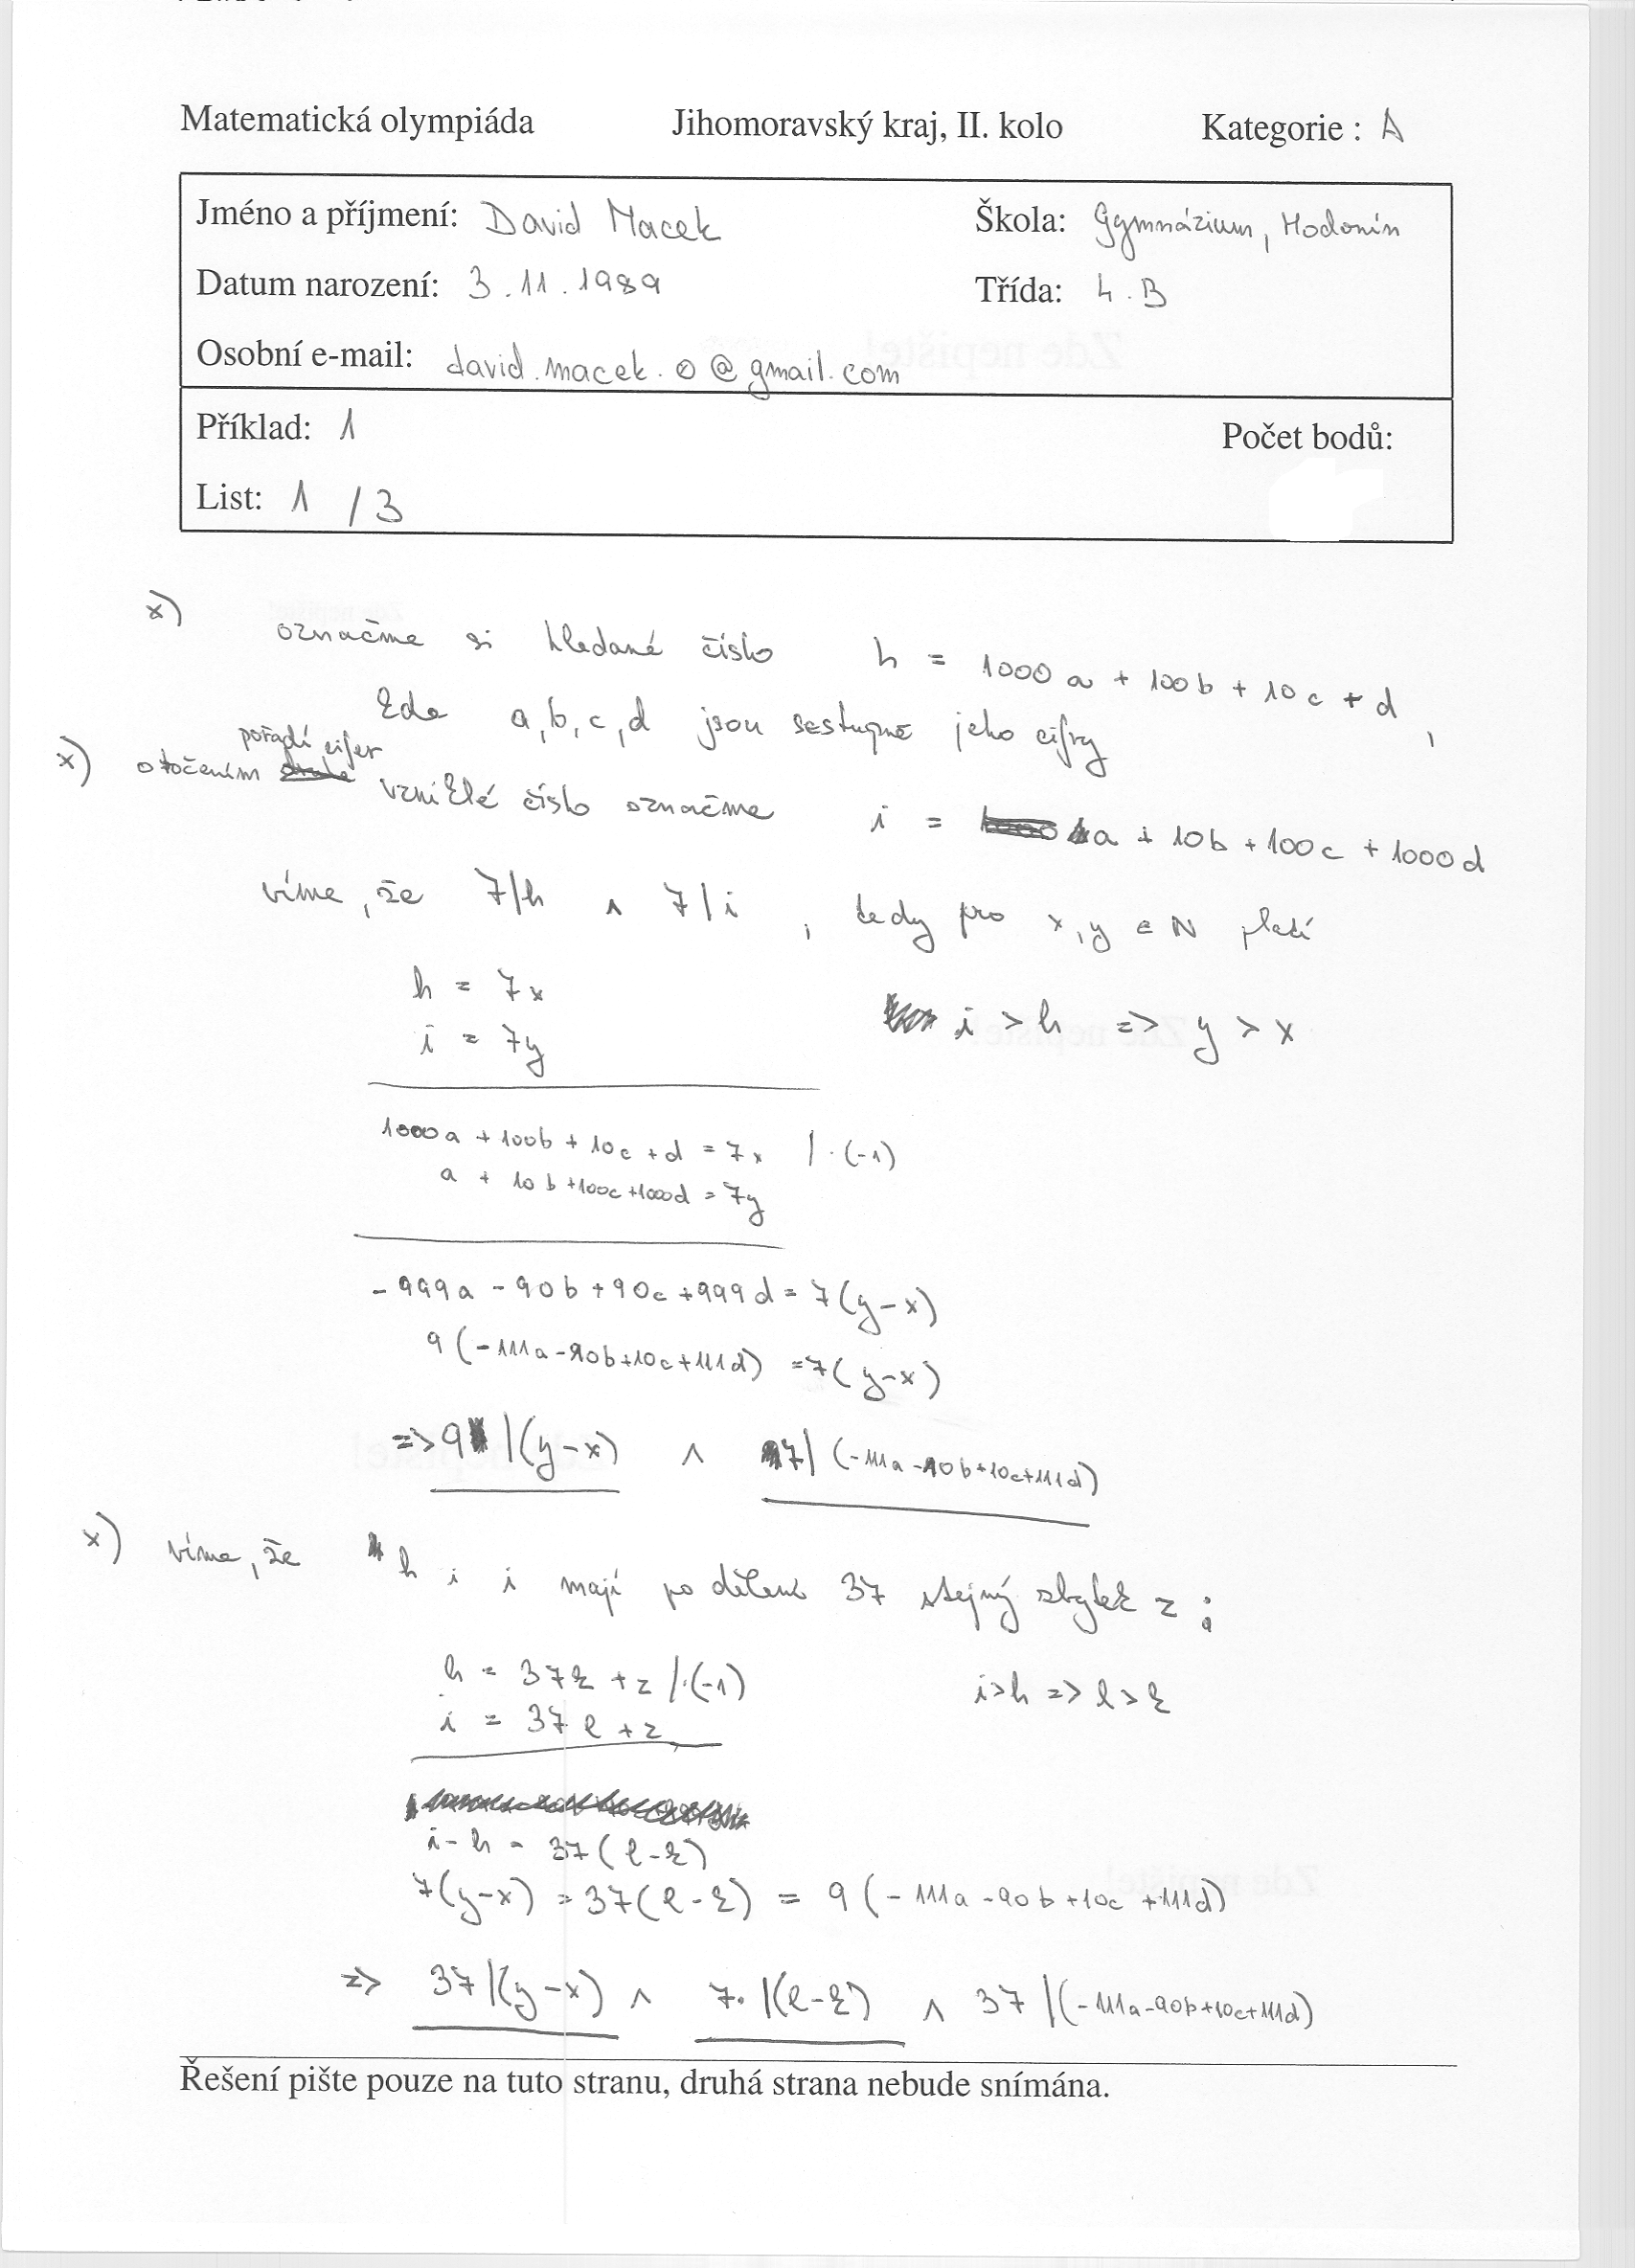 Matematická olympiáda Jihomoravský kraj, II. kolo Kategorie : A
Jméno a příjmení: David Macek Škola: Gymnázium, Hodonín
Datum narození: 3.11.1989 Třída: 4.B
Osobní e-mail: david.macek.0@gmail.com
Příklad: 1 Počet bodů:
List: 1 / 3
x) označme si hledané číslo h = 1000a + 100b + 10c + d,
kde a, b, c, d jsou sestupně jeho cifry
x) otočením pořadí cifer vzniklé číslo označme i = a + 10b + 100c + 1000d
víme, že 7|h ∧ 7|i, tedy pro x, y ∈ N platí
h = 7x
i = 7y i > h => y > x
1000a + 100b + 10c + d = 7x /·(-1)
a + 10b + 100c + 1000d = 7y
- 999a - 90b + 90c + 999d = 7(y-x)
9(-111a-10b+10c+111d) = 7(y-x)
=> 9|(y-x) ∧ 7|(-111a-10b+10c+111d)
x) víme, že h i i mají po dělení 37 stejný zbytek z:
h = 37k + z /·(-1) i>h => l>k
i = 37l + z
i-h = 37(l-k)
7(y-x) = 37(l-k) = 9(-111a-90b+10c+111d)
=> 37|(y-x) ∧ 7|(l-k) ∧ 37|(-111a-90b+10c+111d)
Řešení pište pouze na tuto stranu, druhá strana nebude snímána.